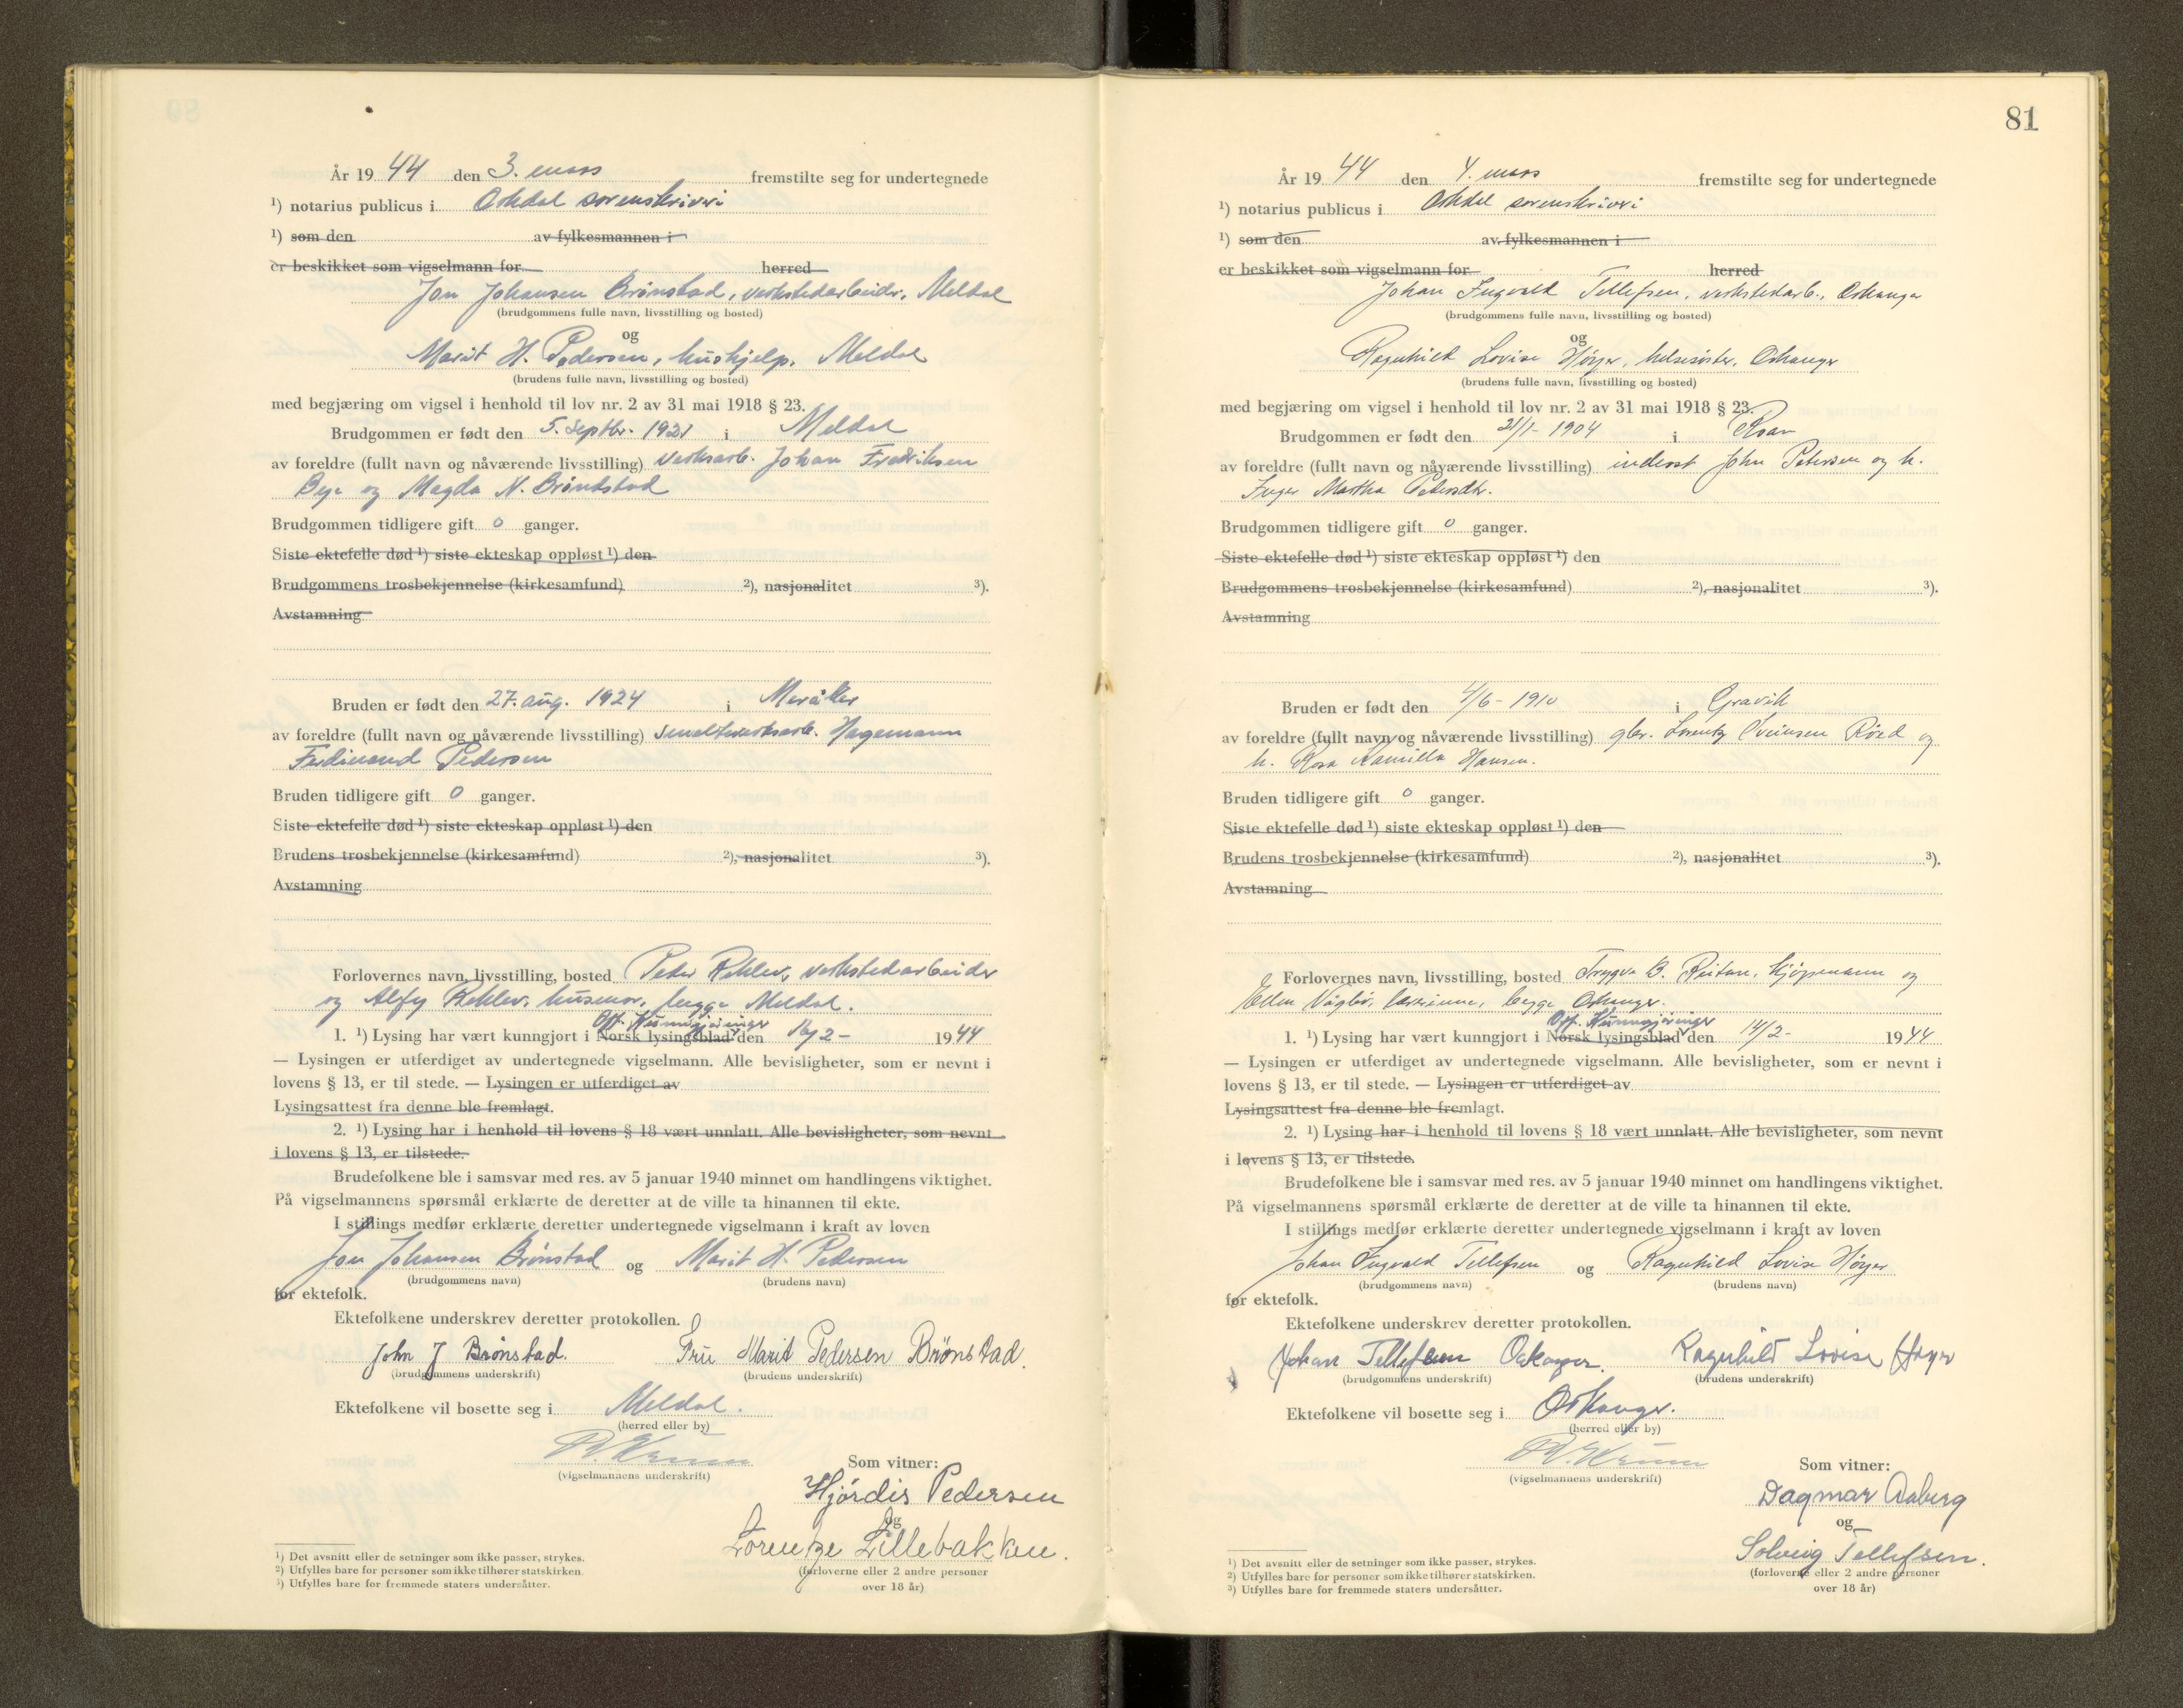 År 19 44 den 3. mars fremstilte seg for undertegnede
¹) notarius publicus i Orkdal sorenskriveri
¹) som den av fylkesmannen i
er beskikket som vigselmann for herred
Jon Johansen Brønstad, verkstedarbeider, Meldal
(brudgommens fulle navn, livsstilling og bosted)
og
Marit H. Pedersen, hushjelp, Meldal
(brudens fulle navn, livsstilling og bosted)
med begjæring om vigsel i henhold til lov nr. 2 av 31 mai 1918 § 23.
Brudgommen er født den 5. septbr. 1921 i Meldal
av foreldre (fullt navn og nåværende livsstilling) verksarb. Johan Fredriksen
Bye og Magda N. Brøndstad
Brudgommen tidligere gift 0 ganger.
Siste ektefelle død ¹) siste ekteskap oppløst ¹) den
Brudgommens trosbekjennelse (kirkesamfund) ²), nasjonalitet ³).
Avstamning
Bruden er født den 27. aug. 1924 i Meråker
av foreldre (fullt navn og nåværende livsstilling) smelteverksarb. Hagemann
Ferdinand Pedersen
Bruden tidligere gift 0 ganger.
Siste ektefelle død ¹) siste ekteskap oppløst ¹) den
Brudens trosbekjennelse (kirkesamfund) ²), nasjonalitet ³).
Avstamning
Forlovernes navn, livsstilling, bosted Peder verkstedarbeider
og husmor, begge Meldal.
Off. Kunngjøringer
1. ¹) Lysing har vært kunngjort i Norsk lysingsblad den /2 - 1944
— Lysingen er utferdiget av undertegnede vigselmann. Alle bevisligheter, som er nevnt i
lovens § 13, er til stede. — Lysingen er utferdiget av
Lysingsattest fra denne ble fremlagt.
2. ¹) Lysing har i henhold til lovens § 18 vært unnlatt. Alle bevisligheter, som nevnt
i lovens § 13, er tilstede.
Brudefolkene ble i samsvar med res. av 5 januar 1940 minnet om handlingens viktighet.
På vigselmannens spørsmål erklærte de deretter at de ville ta hinannen til ekte.
I stillings medfør erklærte deretter undertegnede vigselmann i kraft av loven
Jon Johansen Brønstad og Marit H. Pedersen
(brudgommens navn) (brudens navn)
før ektefolk.
Ektefolkene underskrev deretter protokollen.
John J Brønstad. Fru Marit Pedersen Brønstad.
(brudgommens underskrift) (brudens underskrift)
Ektefolkene vil bosette seg i Meldal.
(herred eller by)
(vigselmannens underskrift)
Som vitner:
Hjórdis Pedersen
og
Lorentze Lillebakken.
(forloverne eller 2 andre personer
over 18 år)
¹) Det avsnitt eller de setninger som ikke passer, strykes.
²) Utfylles bare for personer som ikke tilhører statskirken.
³) Utfylles bare for fremmede staters undersåtter.
81
År 19 44 den 4. mars fremstilte seg for undertegnede
¹) notarius publicus i Orkdal sorenskriveri
¹) som den av fylkesmannen i
er beskikket som vigselmann for herred
Johan Ingvald Tellefsen, verkstedarb., Orkanger
(brudgommens fulle navn, livsstilling og bosted)
og
Ragnhild Lovise Høyer, helsesøster, Orkanger
(brudens fulle navn, livsstilling og bosted)
med begjæring om vigsel i henhold til lov nr. 2 av 31 mai 1918 § 23.
Brudgommen er født den 21/1- 1904 i Roan
av foreldre (fullt navn og nåværende livsstilling) inderst John Petersen og h.
Inger Martha Petersdtr.
Brudgommen tidligere gift 0 ganger.
Siste ektefelle død ¹) siste ekteskap oppløst ¹) den
Brudgommens trosbekjennelse (kirkesamfund) ²), nasjonalitet ³).
Avstamning
Bruden er født den 4/6- 1910 i Gravik
av foreldre (fullt navn og nåværende livsstilling) gbr. Lorentz Røed og
h. Rosa Kamilla Hansen.
Bruden tidligere gift 0 ganger.
Siste ektefelle død ¹) siste ekteskap oppløst ¹) den
Brudens trosbekjennelse (kirkesamfund) ²), nasjonalitet ³).
Avstamning
Forlovernes navn, livsstilling, bosted Trygve B. Reitan, kjøpmann og
Ellen Vågbø, lærerinne, begge Orkanger.
Off. Kunngjøringer
1. ¹) Lysing har vært kunngjort i Norsk lysingsblad den 14/2- 1944
— Lysingen er utferdiget av undertegnede vigselmann. Alle bevisligheter, som er nevnt i
lovens § 13, er til stede. — Lysingen er utferdiget av
Lysingsattest fra denne ble fremlagt.
2. ¹) Lysing har i henhold til lovens § 18 vært unnlatt. Alle bevisligheter, som nevnt
i lovens § 13, er tilstede.
Brudefolkene ble i samsvar med res. av 5 januar 1940 minnet om handlingens viktighet.
På vigselmannens spørsmål erklærte de deretter at de ville ta hinannen til ekte.
I stillings medfør erklærte deretter undertegnede vigselmann i kraft av loven
Johan Ingvald Tellefsen og Ragnhild Lovise Høyer
(brudgommens navn) (brudens navn)
før ektefolk.
Ektefolkene underskrev deretter protokollen.
Johan Tellefsen Orkanger. Ragnhild Lovise Høyer
(brudgommens underskrift) (brudens underskrift)
Ektefolkene vil bosette seg i Orkanger.
(herred eller by)
(vigselmannens underskrift)
Som vitner:
Dagmar Aaberg
og
Solveig Tellefsen.
(forloverne eller 2 andre personer
over 18 år)
¹) Det avsnitt eller de setninger som ikke passer, strykes.
²) Utfylles bare for personer som ikke tilhører statskirken.
³) Utfylles bare for fremmede staters undersåtter.